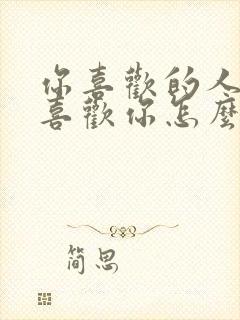 你喜歡的人
喜歡你怎麼
简思